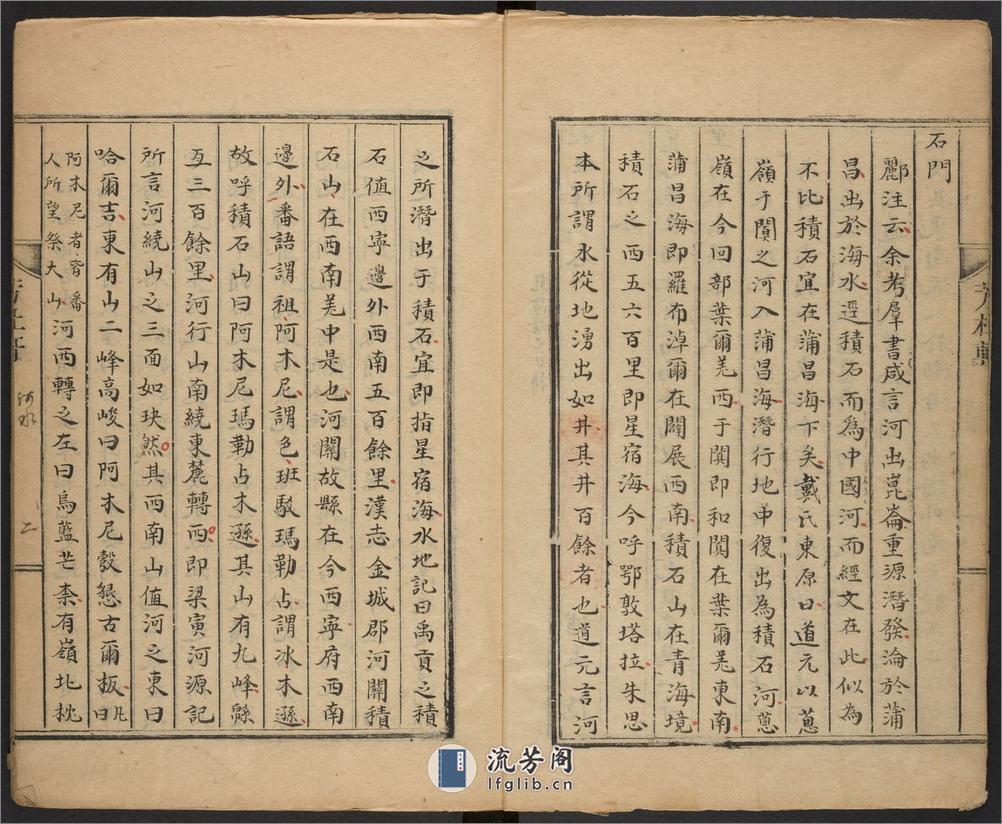 石門
酈注云余考羣書咸言河出崑崙重源潛發淪於蒲
昌出於海水逕積石而為中國河而經文在此似為
不比積石宜在蒲昌海下矣戴氏東原曰道元以蔥
嶺于闐之河入蒲昌海潛行地中復出為積石河蔥
嶺在今回部葉爾羌西于闐即和闐在葉爾羌東南
蒲昌海即羅布淖爾在闢展西南積石山在青海境
積石之西五六百里即星宿海今呼鄂敦塔拉朱思
本所謂水從地湧出如井其井百餘者也道元言河
之所潛出于積石宜即指星宿海水地記曰禹貢之積
石值西寧邊外西南五百餘里漢志金城郡河關積
石山在西南羌中是也河關故縣在今西寧府西南
邊外番語謂祖阿木尼謂色斑駁瑪勒占謂冰木遜
故呼積石山曰阿木尼瑪勒占木遜其山有九峰緜
亙三百餘里河行山南繞東麓轉西即梁寅河源記
所言河繞山之三面如玦然其西南山值河之東曰
哈爾吉東有山二峰高峻曰阿木尼彀懇古爾板凡曰
阿木尼者皆番
人所望祭大山河西轉之左曰烏藍芒柰有嶺北枕
河水
二
流芳阁
lfglib.cn